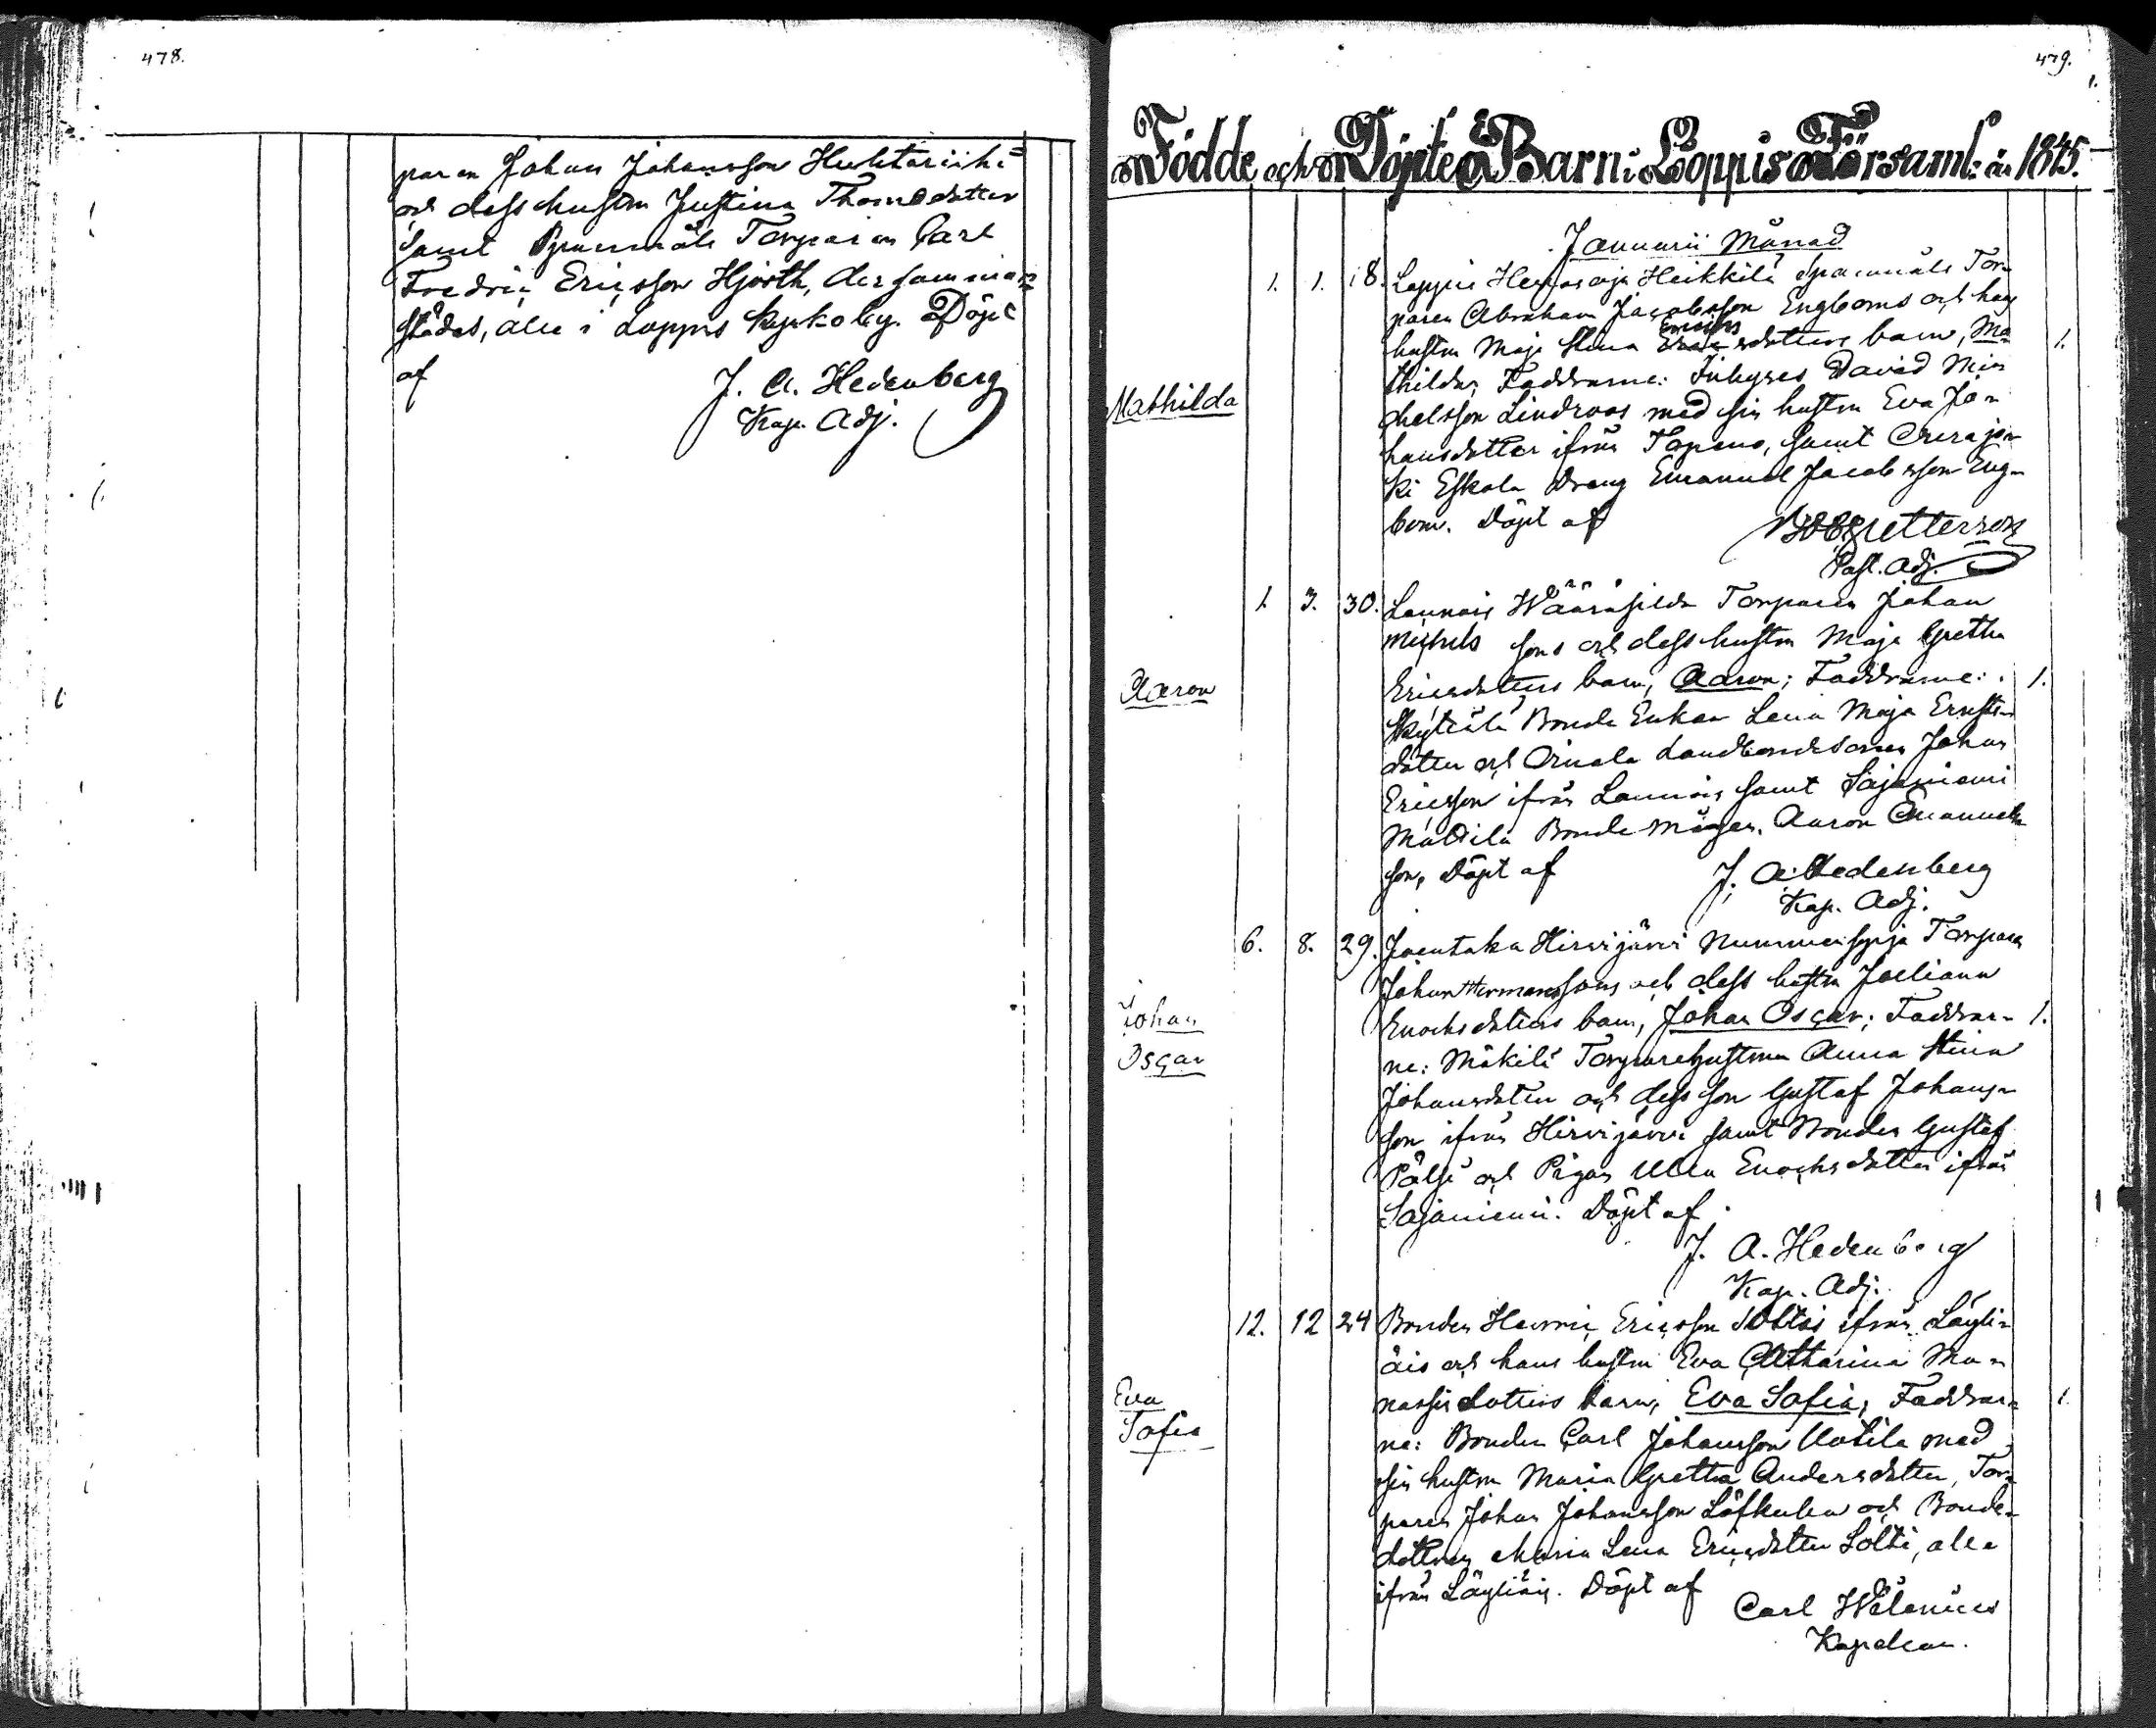 478.
paren Johan Johansson Huhtariihi
och dess hustru Justina Thomædotter
samt Torparen Carl
Fredric Ericsson Hjorth, dersamma-
städes, alle i Loppis Kyrkoby. Döpt
af
J. A. Hedenberg
Kap. Adj.
479.
1.
Födde och Döpte Barn i Loppis Församl: år 1845.
Januarii Månad
1. 1. 18. Loppis Heikkilä Tor-
paren Abraham Jacobsson Engboms och hans
hustru Maja Stina dotters barn, Ma- 1.
Mathilda
thilda; Faddrarne: Inhyses David Mi-
chelsson Lindroos med sin hustru Eva Jo-
hansdotter ifrån Topeno, samt
Eskola Dräng Emanuel Jacobsson Eng-
bom. Döpt af
Petterson
Past. Adj.
1. 3. 30. Launois Wääräpelda Torparen Johan
Michels sons och dess hustru Maja Gretha
Aaron
Ericsdotters barn, Aaron; Faddrarne: 1.
Bonde Enkan Lena Maja
dotter och Landbondesonen Johan
Ericsson ifrån Launois samt Sajaniemi
Mattila Bonde Aaron Emanuels-
son, Döpt af J. A. Hedenberg
Kap. Adj.
6. 8. 29. Joentaka Hirvijärvi Torparen
Johan Hermanssons och dess hustru Juliana
Johan
Enochsdotters barn, Johan Oscar; Faddrar- 1.
Oscar
ne: Mäkilä Torparehustrun Anna Stina
Johansdotter och dess son Gustaf Johans-
son ifrån Hirvijärvi samt Bonden Gustaf
Pälsi och Pigan Ulla Enochsdotter ifrån
Sajaniemi. Döpt af
J. A. Hedenberg
Kap. Adj.
12. 12 24 Bonden Henric Ericsson Soltis ifrån Läyli-
äis och hans hustru Eva Catharina Ma-
Eva
nassedotters barn, Eva Sofia; Faddrar- 1.
Sofia
ne: Bonden Carl Johansson Uotila med
sin hustru Maria Gretha Andersdotter, Tor-
paren Johan Johansson Löfkulla och Bonde-
dottren Maria Lena Ericsdotter Soltti, alla
ifrån Läyliäis. Döpt af
Carl Welenius
Kapellan.